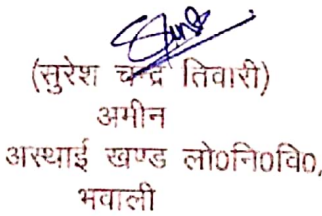 (सुरेश चन्द्र तिवारी)
अमीन
अस्थाई खण्ड लो०नि०वि०,
भवाली